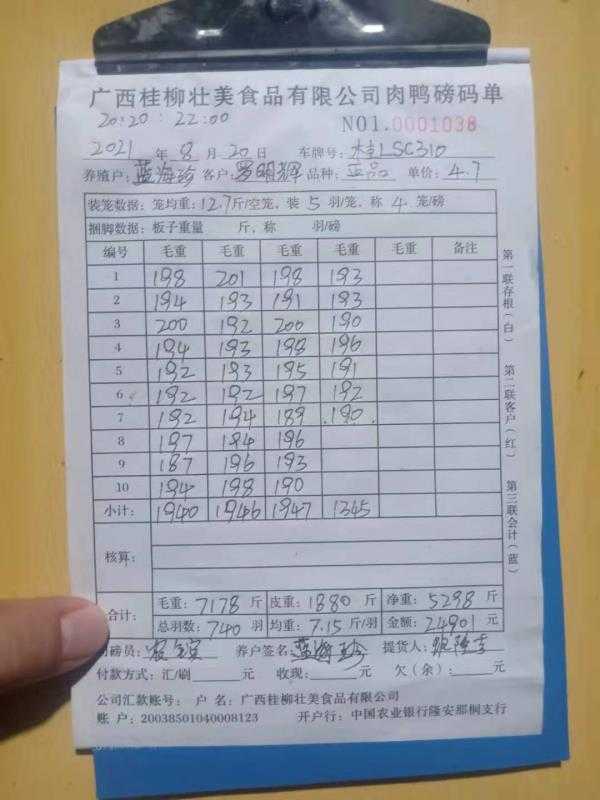 广西桂柳壮美食品有限公司肉鸭磅码单
20:20:22:00
NO1.0001038
2021 年 8 月 20 日 车牌号: LSC310
养殖户: 蓝海珍 客户: 罗明辉 品种: 正品 单价: 4.7
装笼数据: 笼均重: 12.7 斤/空笼, 装 5 羽/笼, 称 4 笼/磅
捆脚数据: 板子重量 斤, 称 羽/磅
编号 毛重 毛重 毛重 毛重 毛重 备注
1 198 201 198 193
2 194 193 191 193
3 200 192 200 190
4 194 193 198 196
5 192 193 195 191
6 192 192 197 192
7 192 194 189 190
8 197 194 196
9 187 196 193
10 194 198 190
小计: 1940 1946 1947 1345
核算:
合计: 毛重: 7178 斤 皮重: 1880 斤 净重: 5298 斤
总羽数: 740 羽 均重: 7.15 斤/羽 金额: 24901 元
司磅员: 养户签名: 蓝海珍 提货人:
付款方式: 汇/刷 元 收现: 元 欠(余): 元
公司汇款账号: 户 名: 广西桂柳壮美食品有限公司
账 户: 20038501040008123 开户行: 中国农业银行隆安那桐支行
第一联存根(白)
第二联客户(红)
第三联会计(蓝)